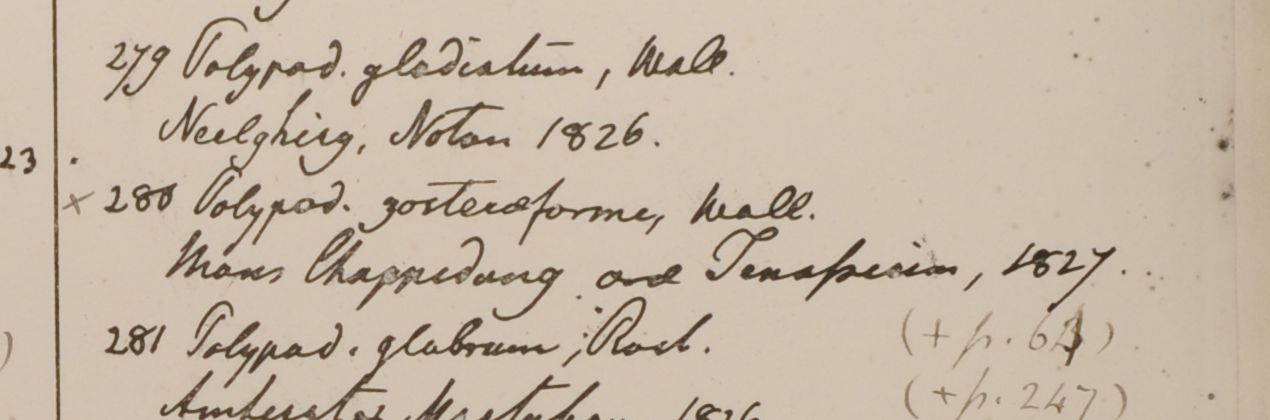 279 Polypod. gladiatum, Wall.
Neelghiry, Noton 1826.
23
× 280 Polypod. zosteræforme, Wall.
Mons Chappedong oræ Tenasserim, 1827.
281 Polypod. glabrum; Roxb. (+ p. 63)
Amherst Martaban 1826 (+ p. 247)